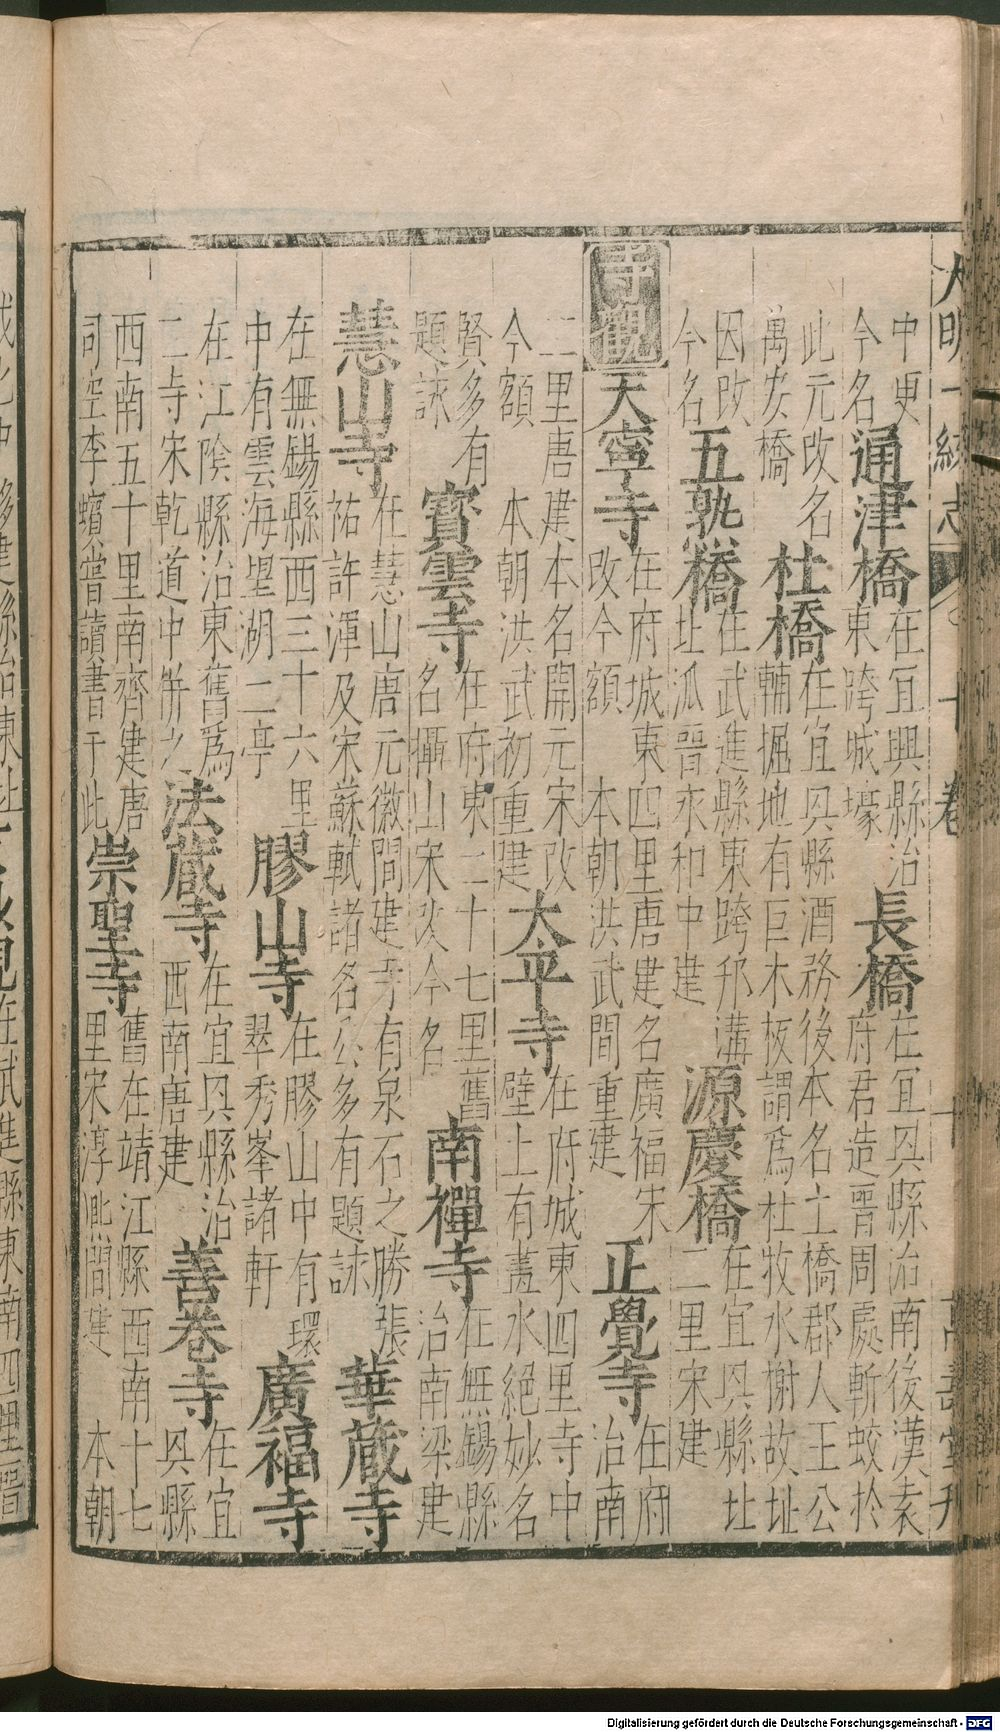 大明一統志 十卷 十 萬壽堂刊
中更
今名
通津橋
在宜興縣治
東跨城壕
長橋
在宜㒷縣治南後漢袁
府君造晋周處斬蛟於
此元改名
萬安橋
杜橋
在宜㒷縣酒務後本名土橋郡人王公
輔掘地有巨木板謂爲杜牧水榭故址
因改
今名
五𤍠橋
在武進縣東跨邗溝
址瓜晋永和中建
源慶橋
在宜㒷縣址
二里宋建
寺觀
天寧寺
在府城東四里唐建名廣福宋
改今額 本朝洪武間重建
正覺寺
在府
治南
二里唐建本名開元宋改
今額 本朝洪武初重建
太平寺
在府城東四里寺中
壁上有畫水絕妙名
賢多有
題詠
寳雲寺
在府東二十七里舊
名攝山宋改今名
南禪寺
在無錫縣
治南梁建
慧山寺
在慧山唐元徽間建寺有泉石之勝張
祐許渾及宋蘇軾諸名公多有題詠
華藏寺
在無錫縣西三十六里
中有雲海望湖二亭
膠山寺
在膠山中有環
翠秀峯諸軒
廣福寺
在江隂縣治東舊爲
二寺宋乾道中併之
法藏寺
在宜㒷縣治
西南唐建
善卷寺
在宜
㒷縣
西南五十里南齊建唐
司空李蠙嘗讀書于此
崇聖寺
舊在靖江縣西南十七
里宋淳熈間建 本朝
在武進縣東南四里晋
Digitalisierung gefördert durch die Deutsche Forschungsgemeinschaft - DFG